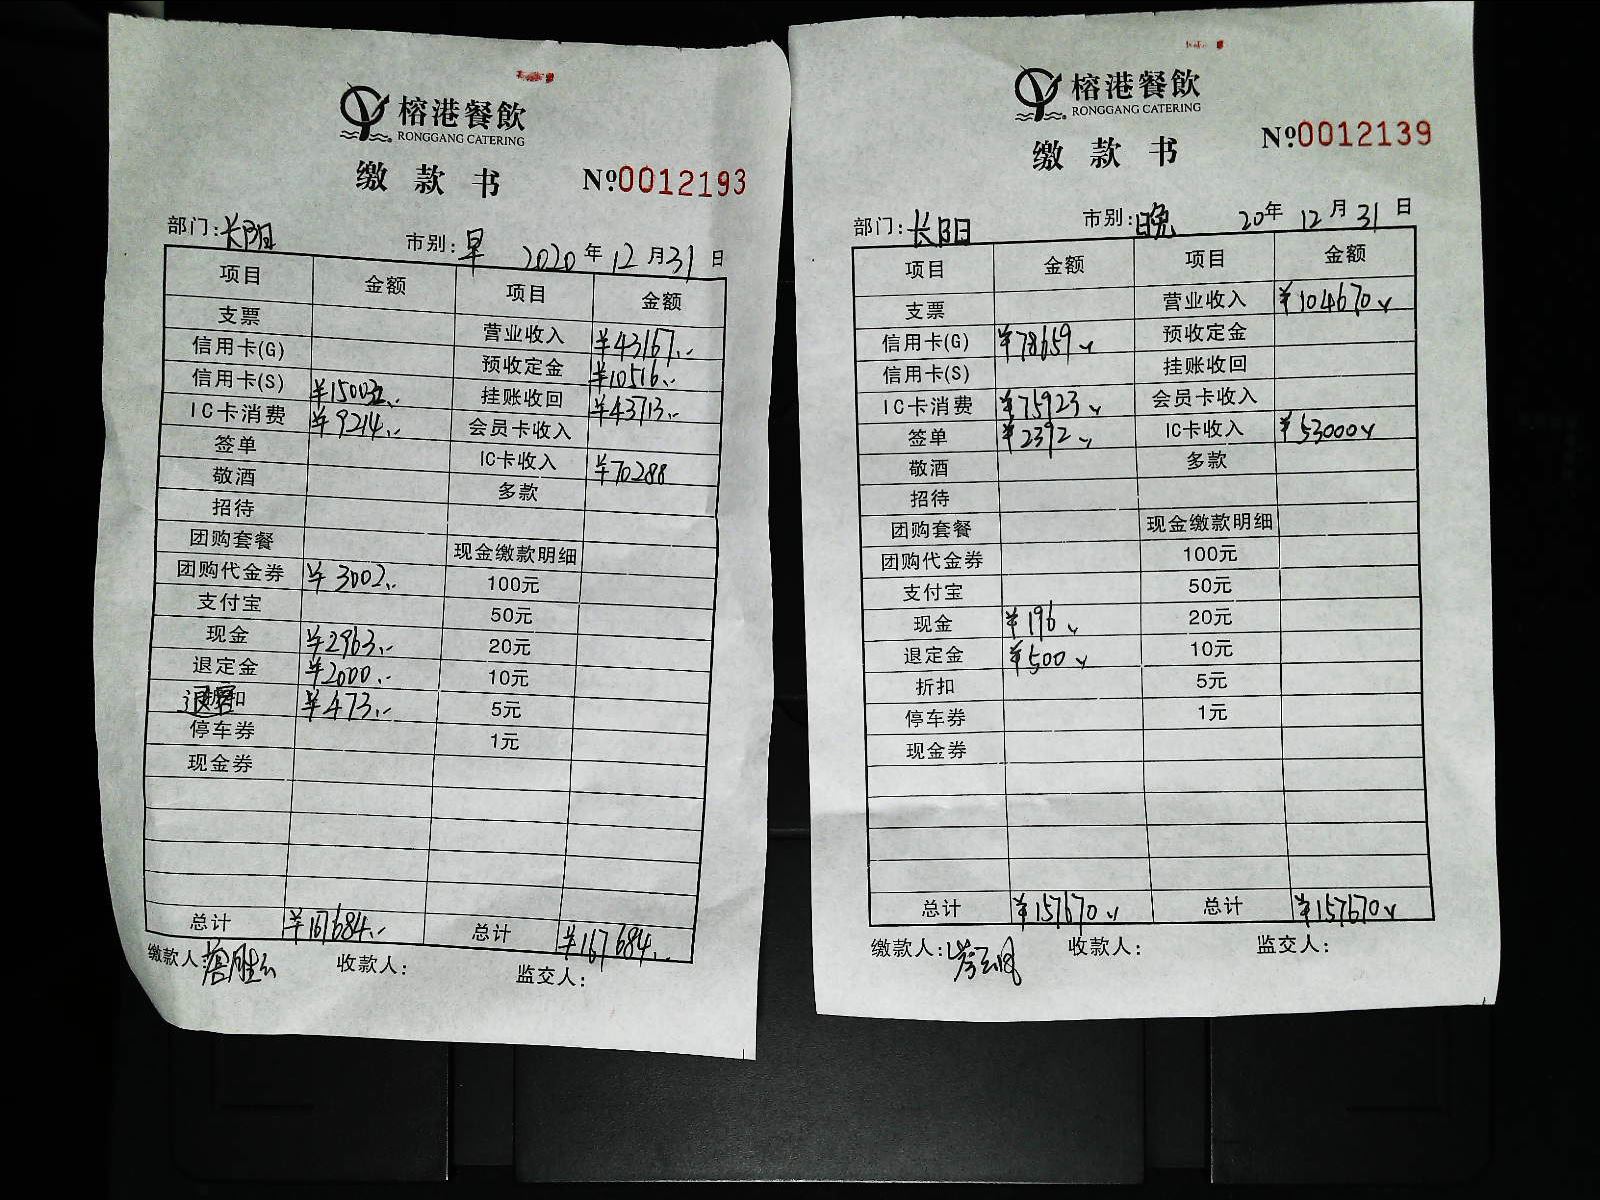 榕港餐飲
RONGGANG CATERING
缴款书 №0012193
部门: 长阳 市别: 早 2020年12月31日
项目 金额 项目 金额
支票 营业收入 ¥43167.-
信用卡(G) 预收定金 ¥10516.-
信用卡(S) ¥150032.- 挂账收回 ¥43713.-
IC卡消费 ¥9214.- 会员卡收入
签单 IC卡收入 ¥70288
敬酒 多款
招待
团购套餐 现金缴款明细
团购代金券 ¥3002.- 100元
支付宝 50元
现金 ¥2963.- 20元
退定金 ¥2000.- 10元
扣 ¥473.- 5元
停车券 1元
现金券
总计 ¥167684.- 总计 ¥167684.-
缴款人: 收款人: 监交人:
榕港餐飲
RONGGANG CATERING
缴款书 №0012139
部门: 长阳 市别: 晚 20年12月31日
项目 金额 项目 金额
支票 营业收入 ¥104670
信用卡(G) ¥78659 预收定金
信用卡(S) 挂账收回
IC卡消费 ¥75923 会员卡收入
签单 ¥2392 IC卡收入 ¥53000
敬酒 多款
招待
团购套餐 现金缴款明细
团购代金券 100元
支付宝 50元
现金 ¥196 20元
退定金 ¥500 10元
折扣 5元
停车券 1元
现金券
总计 ¥157670 总计 ¥157670
缴款人: 收款人: 监交人: